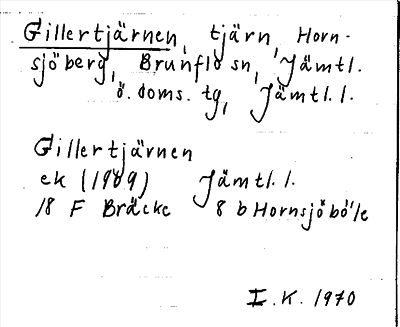 Gillertjärnen, tjärn, Horn-
sjöberg, Brunflo sn, Jämtl.
ö. doms. tg, Jämtl. l.
Gillertjärnen
ek (1969) Jämtl. l.
18 F Bräcke 8 b Hornsjöböle
I. K. 1970